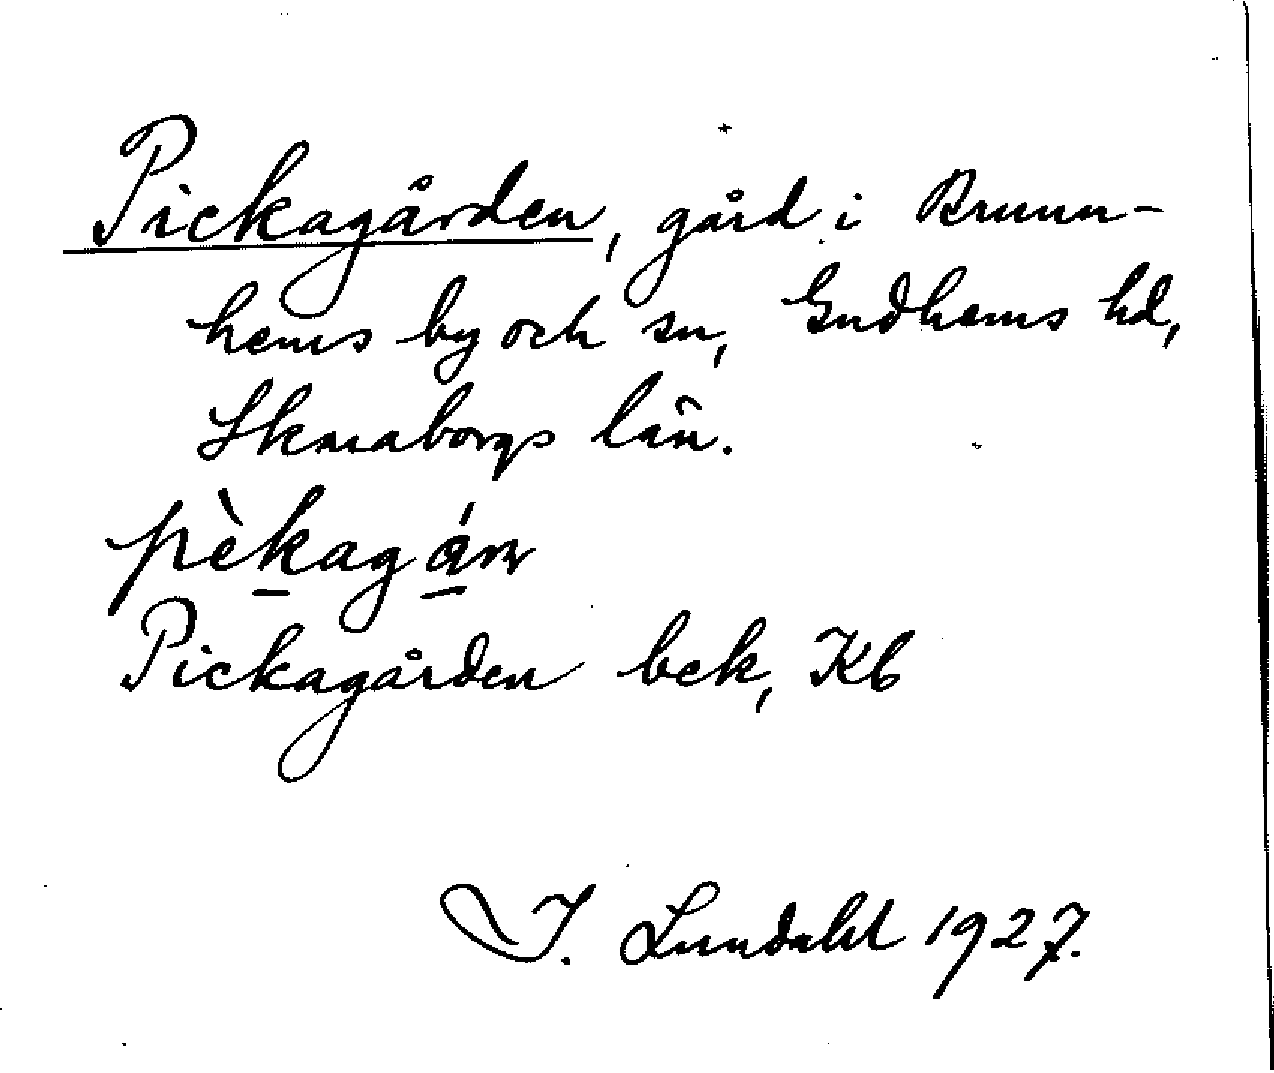 Pickagården, gård i Brunn-
hems by och sn, Gudhems hd,
Skaraborgs län.
pèkagán
Pickagården bek, Kb
I. Lundahl 1927.